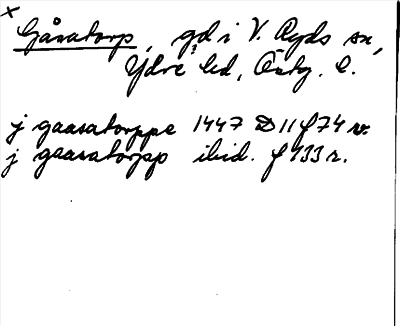 x
Gåsatorp, gd i V. Ryds sn,
Ydre hd, Östg. l.
j gaasatorppe 1447 D 11 f 74 v.
j gaasatorpp ibid. f 133 r.